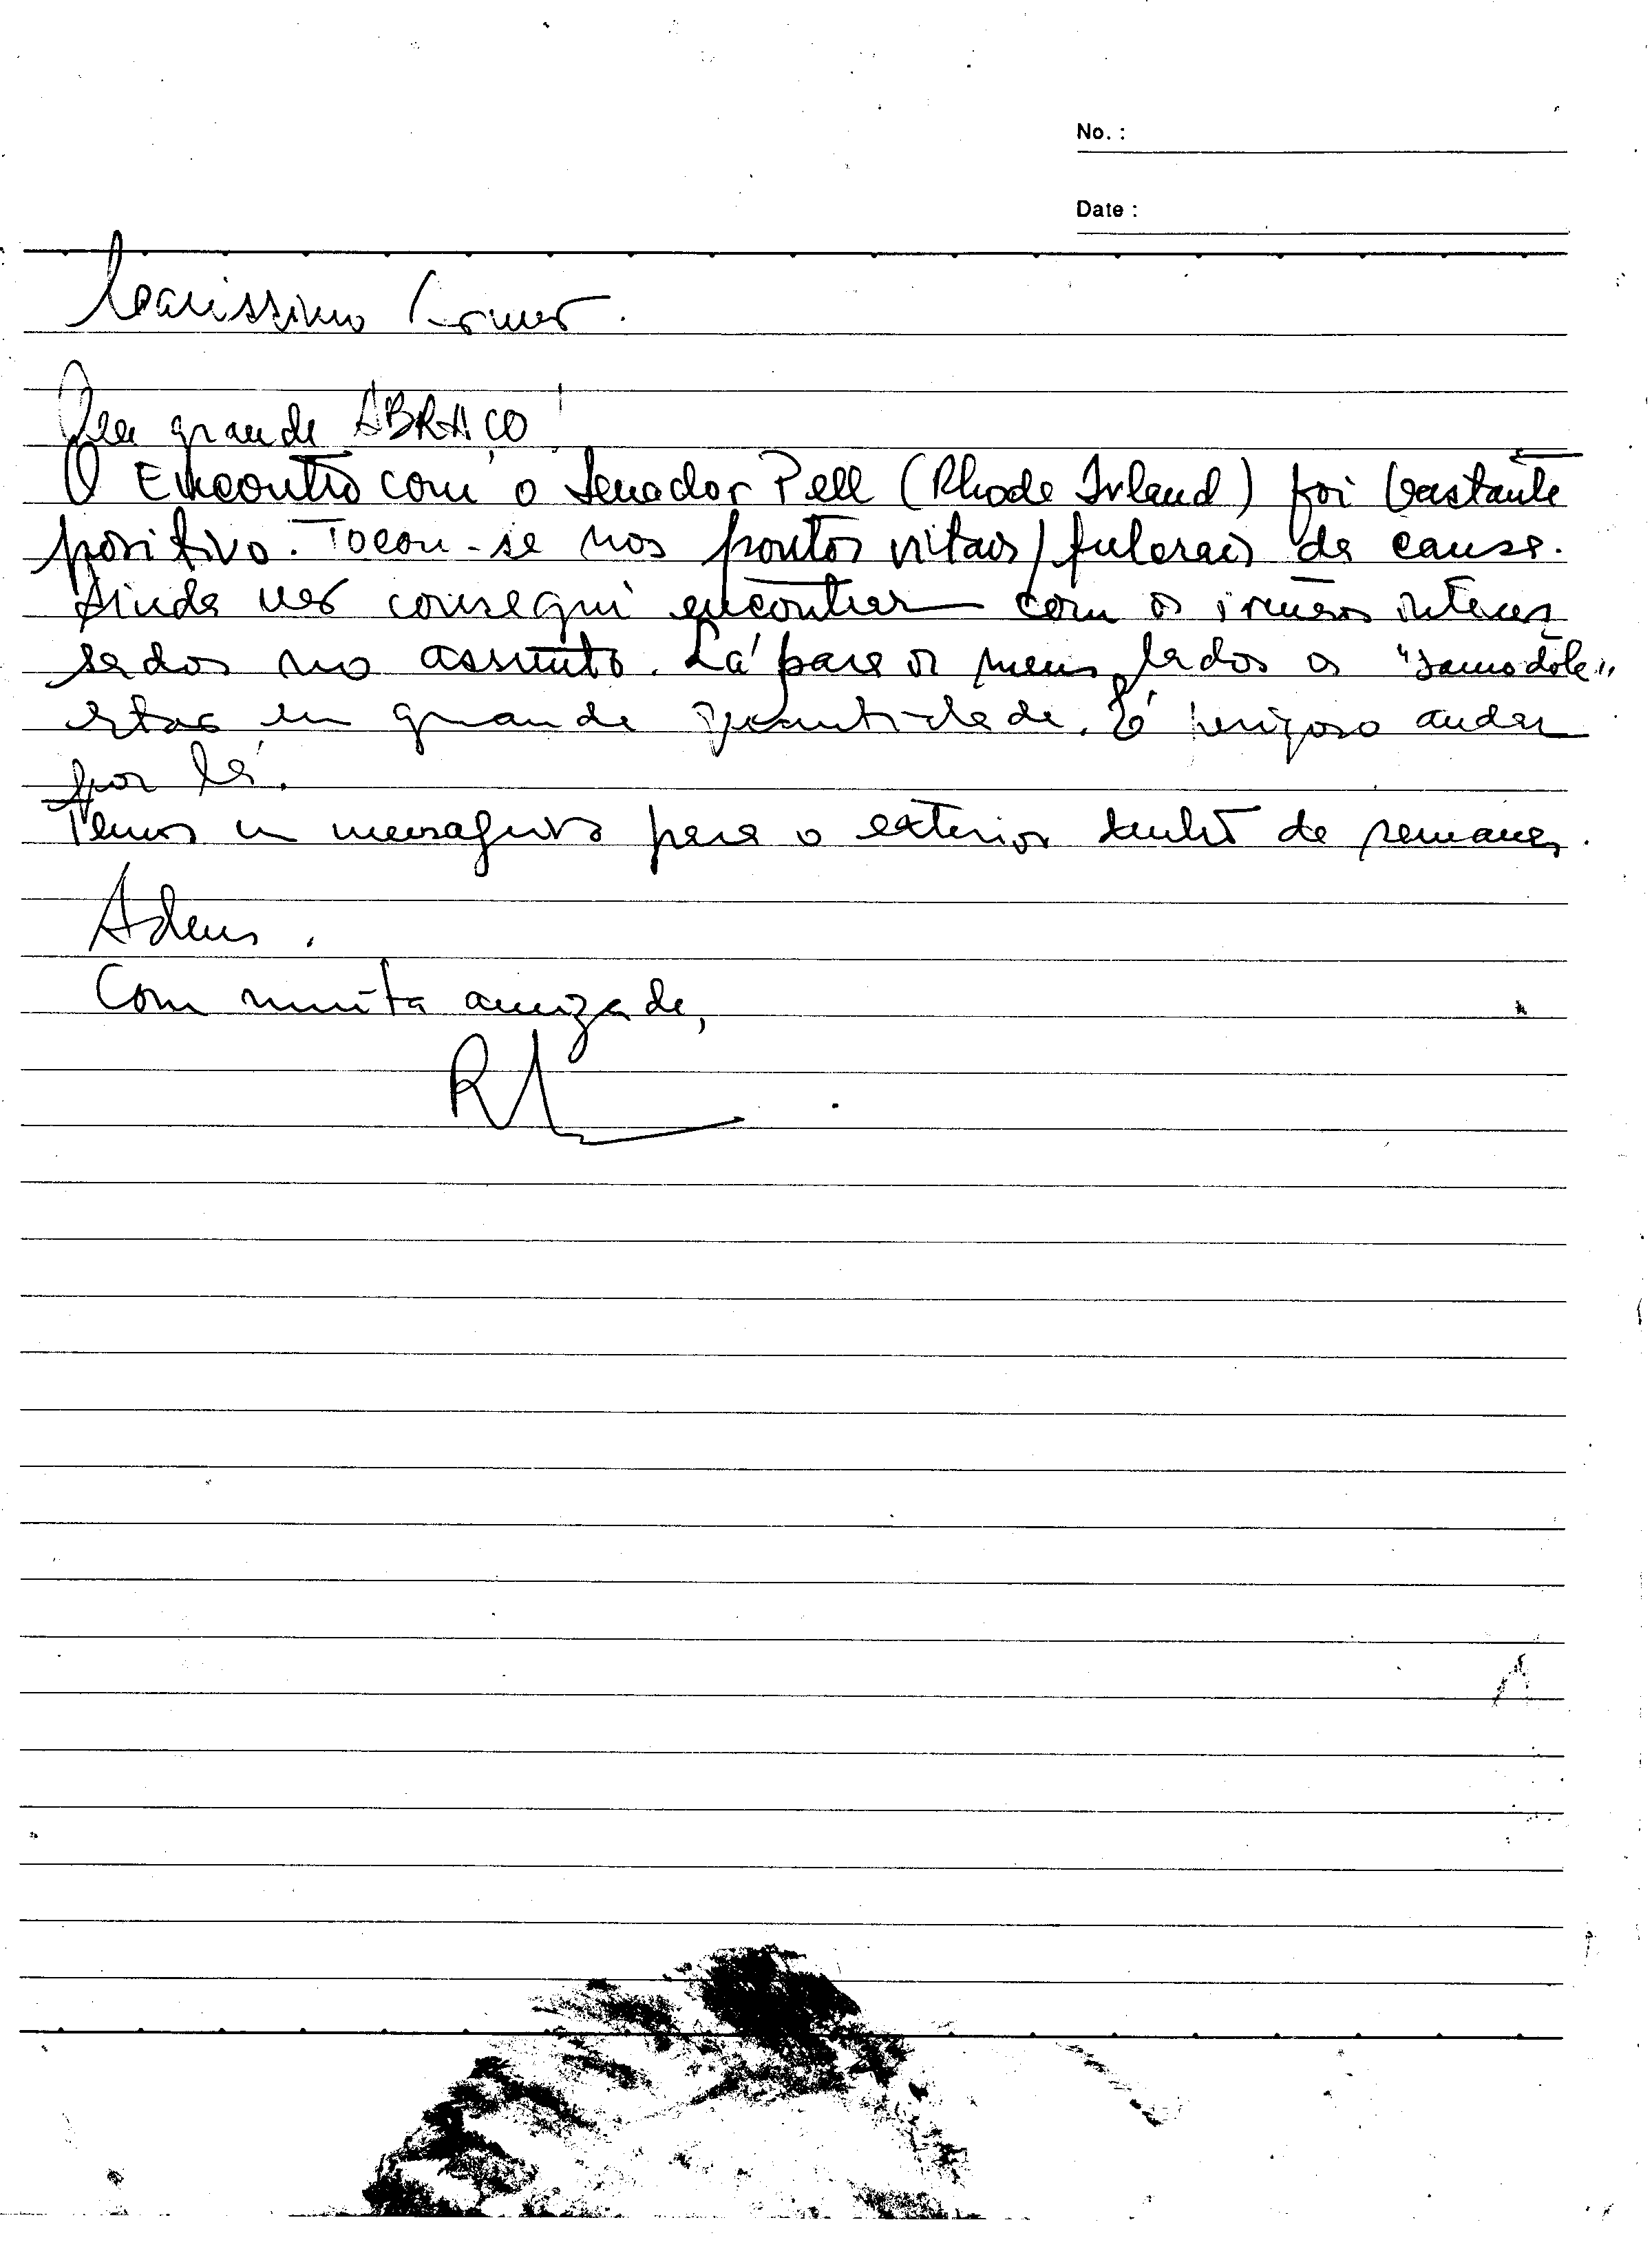 No. :
Date :
Carissimo Irmão.
Um grande ABRAÇO!
O Encontro com o Senador Pell (Rhode Island) foi bastante
positivo. Tocou-se nos pontos vitais/fulcrais da causa.
Ainda não consegui encontrar com os irmãos interes
sados no assunto. Lá para os meus lados os
estão em grande quantidade. É perigoso andar
por lá.
Temos um mensageiro para o exterior dentro de semanas.
Adeus.
Com muita amizade,